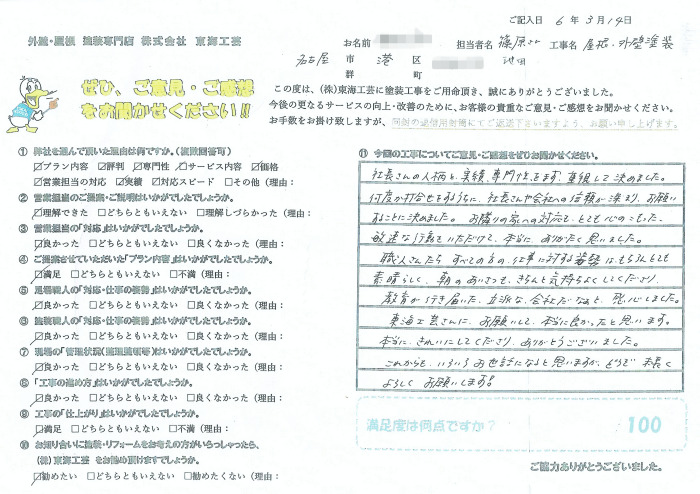 ご記入日 6年3月14日
外壁・屋根 塗装専門店 株式会社 東海工芸
お名前 担当者名 篠原さん 池田 工事名 屋根・外壁塗装
名古屋 市 港 区
郡 町
ぜひ、ご意見・ご感想
をお聞かせください!!
この度は、(株)東海工芸に塗装工事をご用命頂き、誠にありがとうございました。
今後の更なるサービスの向上・改善のために、お客様の貴重なご意見・ご感想をお聞かせください。
お手数をお掛け致しますが、同封の返信用封筒にてご返送下さいますよう、お願い申し上げます。
① 弊社を選んで頂いた理由は何ですか。(複数回答可)
☑プラン内容 ☑評判 ☑専門性 ☑サービス内容 ☑価格
☑営業担当の対応 ☑実績 ☑対応スピード □その他(理由:
② 営業担当のご提案・ご説明はいかがでしたでしょうか。
☑理解できた □どちらともいえない □理解しづらかった(理由:
③ 営業担当の「対応」はいかがでしたでしょうか。
☑良かった □どちらともいえない □良くなかった(理由:
④ ご提案させていただいた「プラン内容」はいかがでしたでしょうか。
☑満足 □どちらともいえない □不満(理由:
⑤ 足場職人の「対応・仕事の姿勢」はいかがでしたでしょうか。
☑良かった □どちらともいえない □良くなかった(理由:
⑥ 塗装職人の「対応・仕事の姿勢」はいかがでしたでしょうか。
☑良かった □どちらともいえない □良くなかった(理由:
⑦ 現場の「管理状況(整理整頓等)」はいかがでしたでしょうか。
☑良かった □どちらともいえない □良くなかった(理由:
⑧ 「工事の進め方」はいかがでしたでしょうか。
☑良かった □どちらともいえない □良くなかった(理由:
⑨ 工事の「仕上がり」はいかがでしたでしょうか。
☑満足 □どちらともいえない □不満(理由:
⑩ お知り合いに塗装・リフォームをお考えの方がいらっしゃったら、
(株)東海工芸 をお勧め頂けますでしょうか。
☑勧めたい □どちらともいえない □勧めたくない(理由:
⑪ 今回の工事についてご意見・ご感想をぜひお聞かせください。
社長さんの人柄と、実績、専門性をまず、重視して決めました。
何度か打合せをするうちに、社長さんや会社への信頼が深まり、お願い
することに決めました。お隣りの家への対応も、とても心のこもった、
敏速な行動をいただけて、本当に、ありがたく思いました。
職人さんたち すべての方の、仕事に対する姿勢はもちろんとても
素晴らしく、朝のあいさつも、きちんと気持ちよくしてくださり、
教育が行き届いた、立派な、会社だなぁと、感心しました。
東海工芸さんに、お願いして、本当に良かったと思います。
本当に、きれいにしてくださり、ありがとうございました。
これからも、いろいろお世話になると思いますが、どうぞ 末長く
よろしく お願いします。
満足度は何点ですか? 100
ご協力ありがとうございました。